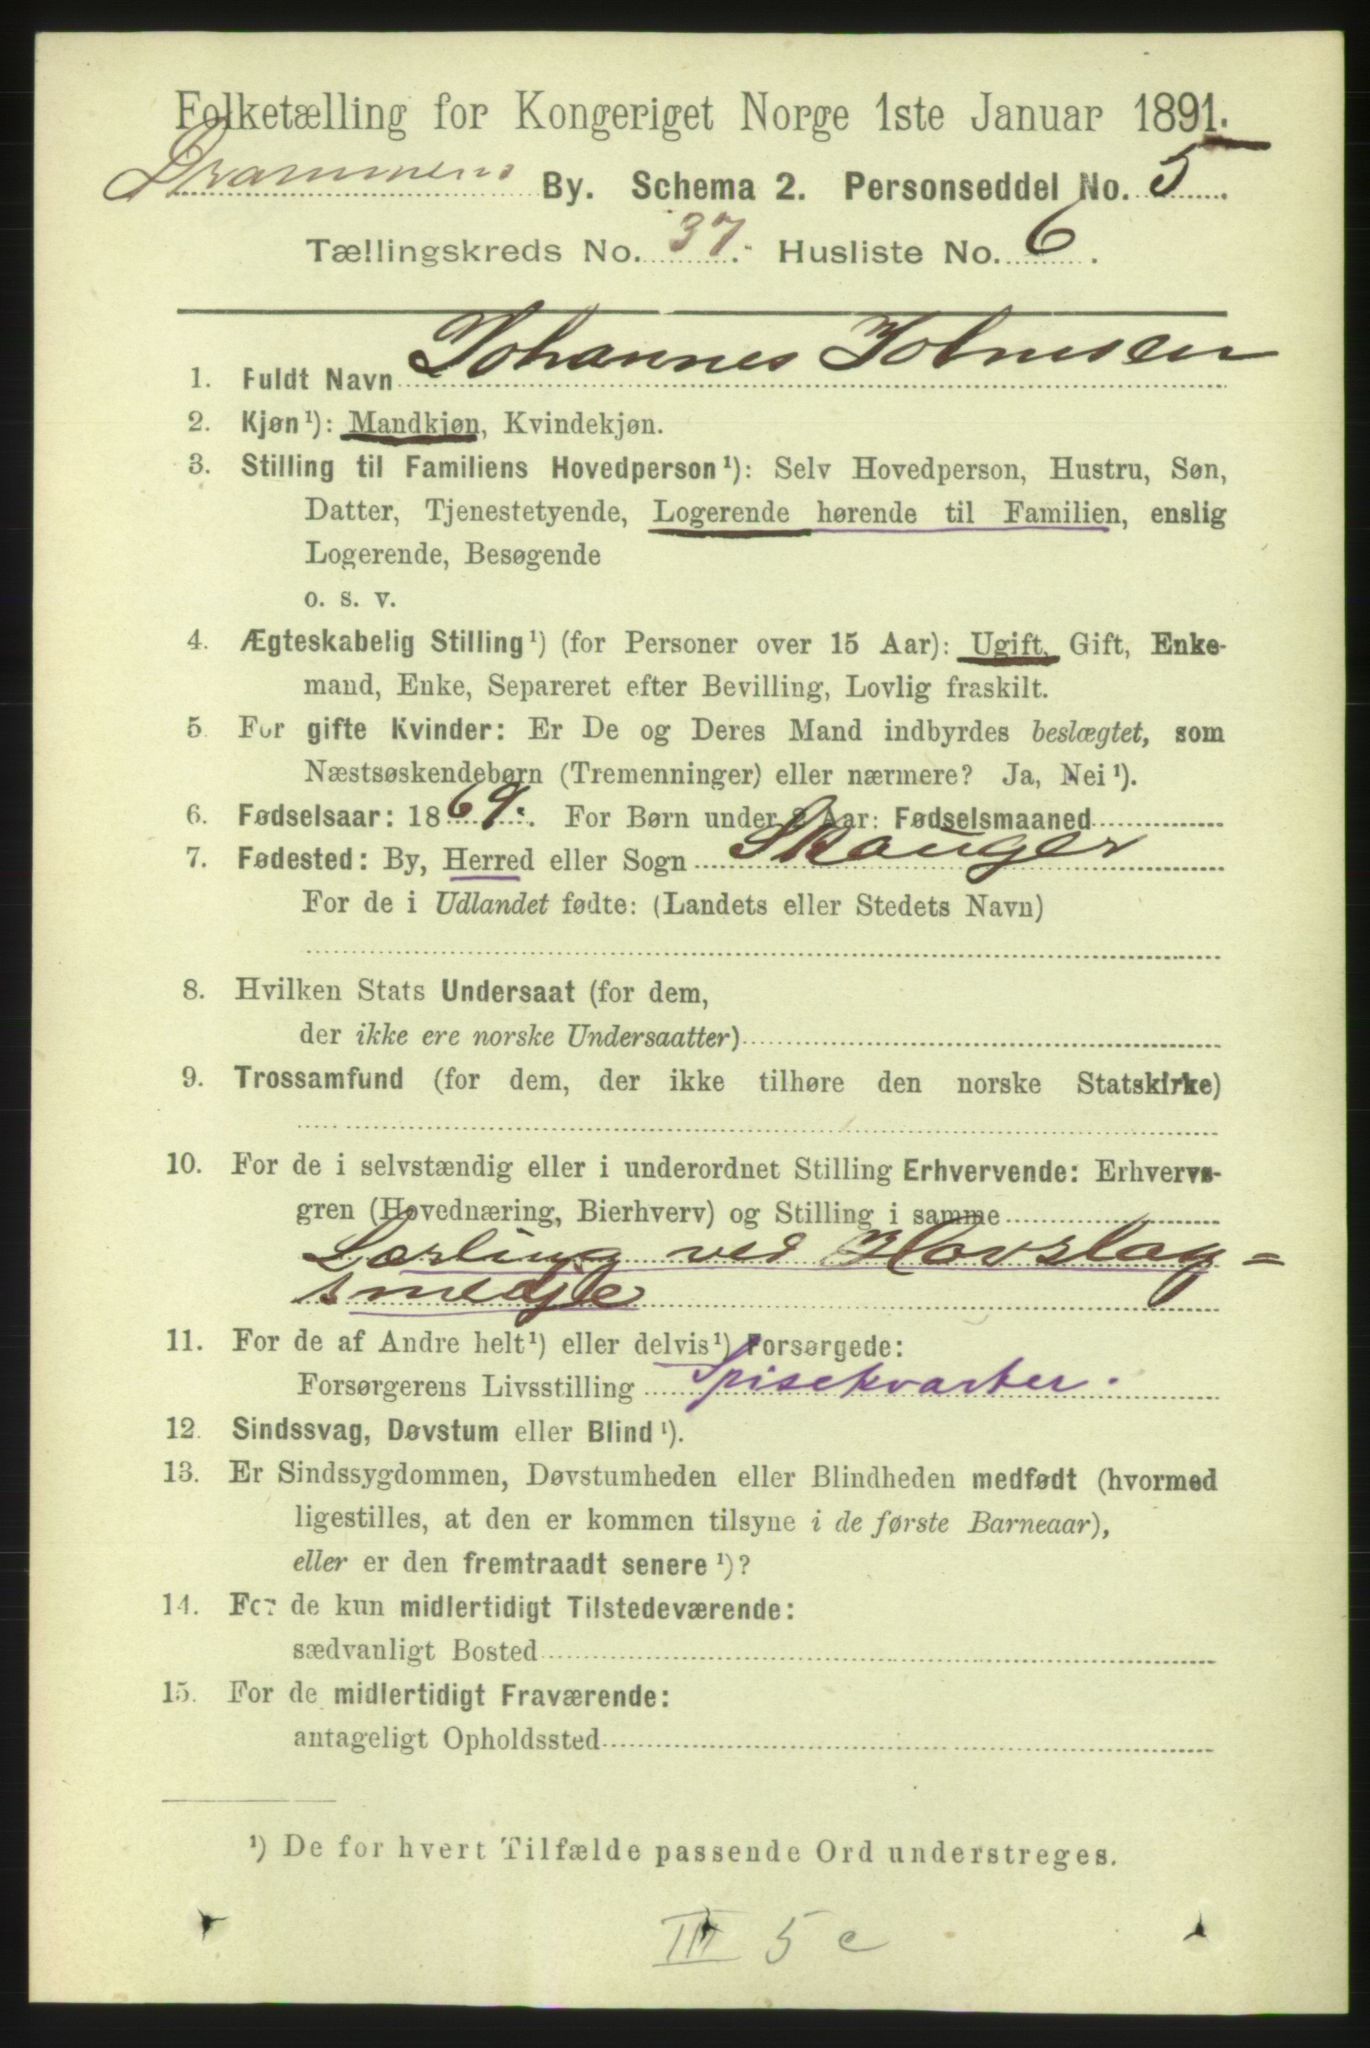 Folketælling for Kongeriget Norge 1ste Januar 1891.
Drammens By. Schema 2. Personseddel No. 5.
Tællingskreds No. 37. Husliste No. 6.
1. Fuldt Navn Johannes Johnsen
2. Kjøn¹): Mandkjøn, Kvindekjøn.
3. Stilling til Familiens Hovedperson¹): Selv Hovedperson, Hustru, Søn,
Datter, Tjenestetyende, Logerende hørende til Familien, enslig
Logerende, Besøgende
o. s. v.
4. Ægteskabelig Stilling¹) (for Personer over 15 Aar): Ugift, Gift, Enke-
mand, Enke, Separeret efter Bevilling, Lovlig fraskilt.
5. For gifte Kvinder: Er De og Deres Mand indbyrdes beslægtet, som
Næstsøskendebørn (Tremenninger) eller nærmere? Ja, Nei¹).
6. Fødselsaar: 1869. For Børn under 2 Aar: Fødselsmaaned
7. Fødested: By, Herred eller Sogn Skouger
For de i Udlandet fødte: (Landets eller Stedets Navn)
8. Hvilken Stats Undersaat (for dem,
der ikke ere norske Undersaatter)
9. Trossamfund (for dem, der ikke tilhøre den norske Statskirke)
10. For de i selvstændig eller i underordnet Stilling Erhvervende: Erhvervs-
gren (Hovednæring, Bierhverv) og Stilling i samme
Lærling ved Hovslag=
smedje
11. For de af Andre helt¹) eller delvis¹) Forsørgede:
Forsørgerens Livsstilling Spisekvarter.
12. Sindssvag, Døvstum eller Blind¹).
13. Er Sindssygdommen, Døvstumheden eller Blindheden medfødt (hvormed
ligestilles, at den er kommen tilsyne i de første Barneaar),
eller er den fremtraadt senere¹)?
14. For de kun midlertidigt Tilstedeværende:
sædvanligt Bosted
15. For de midlertidigt Fraværende:
antageligt Opholdssted
¹) De for hvert Tilfælde passende Ord understreges.
III 5 c